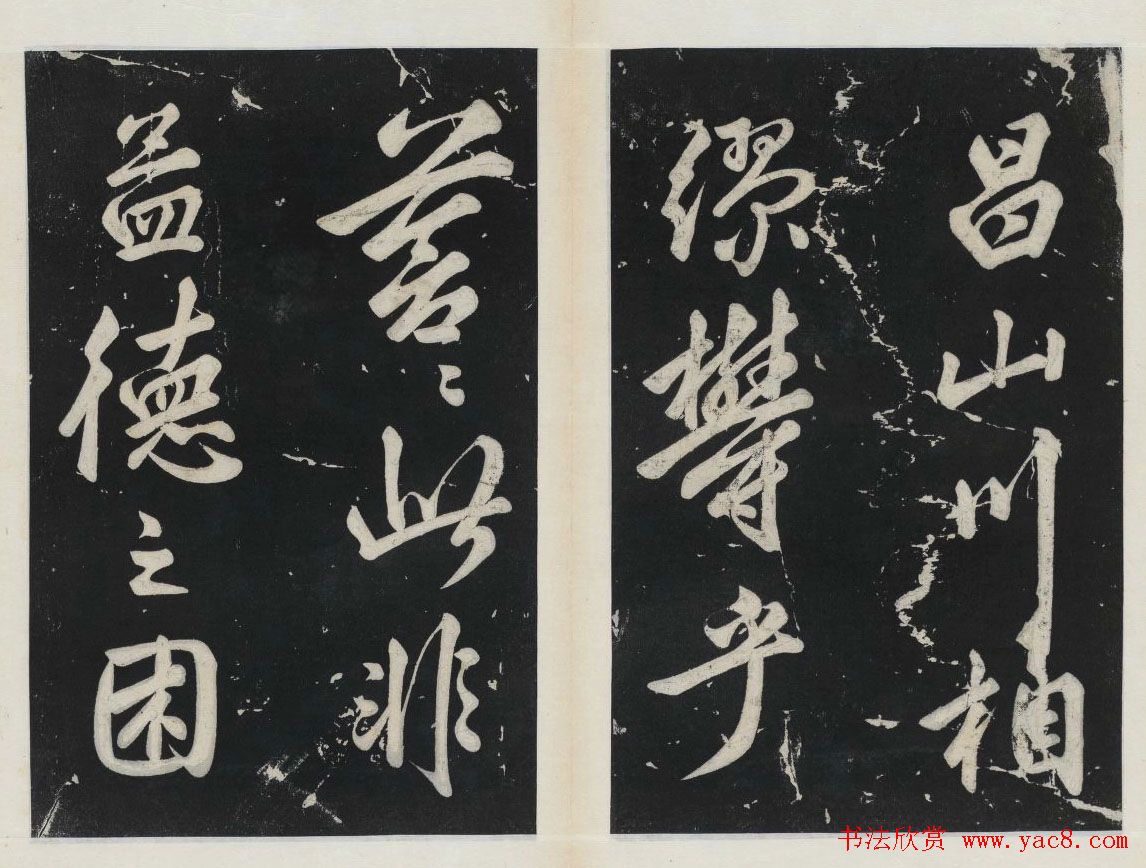 昌山川相
繆鬱乎
蒼〻此非
孟德之困
书法欣赏 www.yac8.com